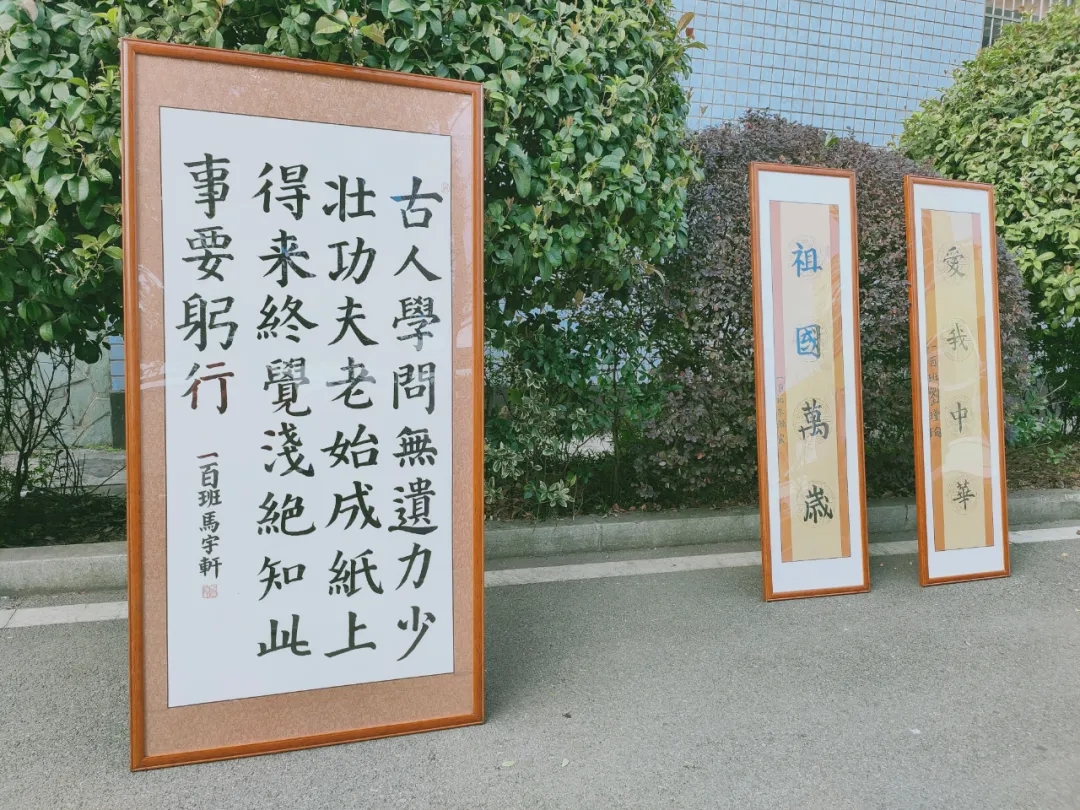 古人學問無遺力少
壮功夫老始成紙上
得来終覺淺絕知此
事要躬行
一百班馬宇軒
愛我中華
祖國萬歲